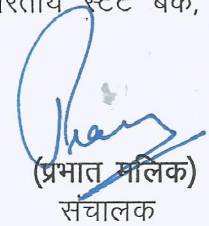 स्टेट बैंक,
(प्रभात मलिक)
संचालक